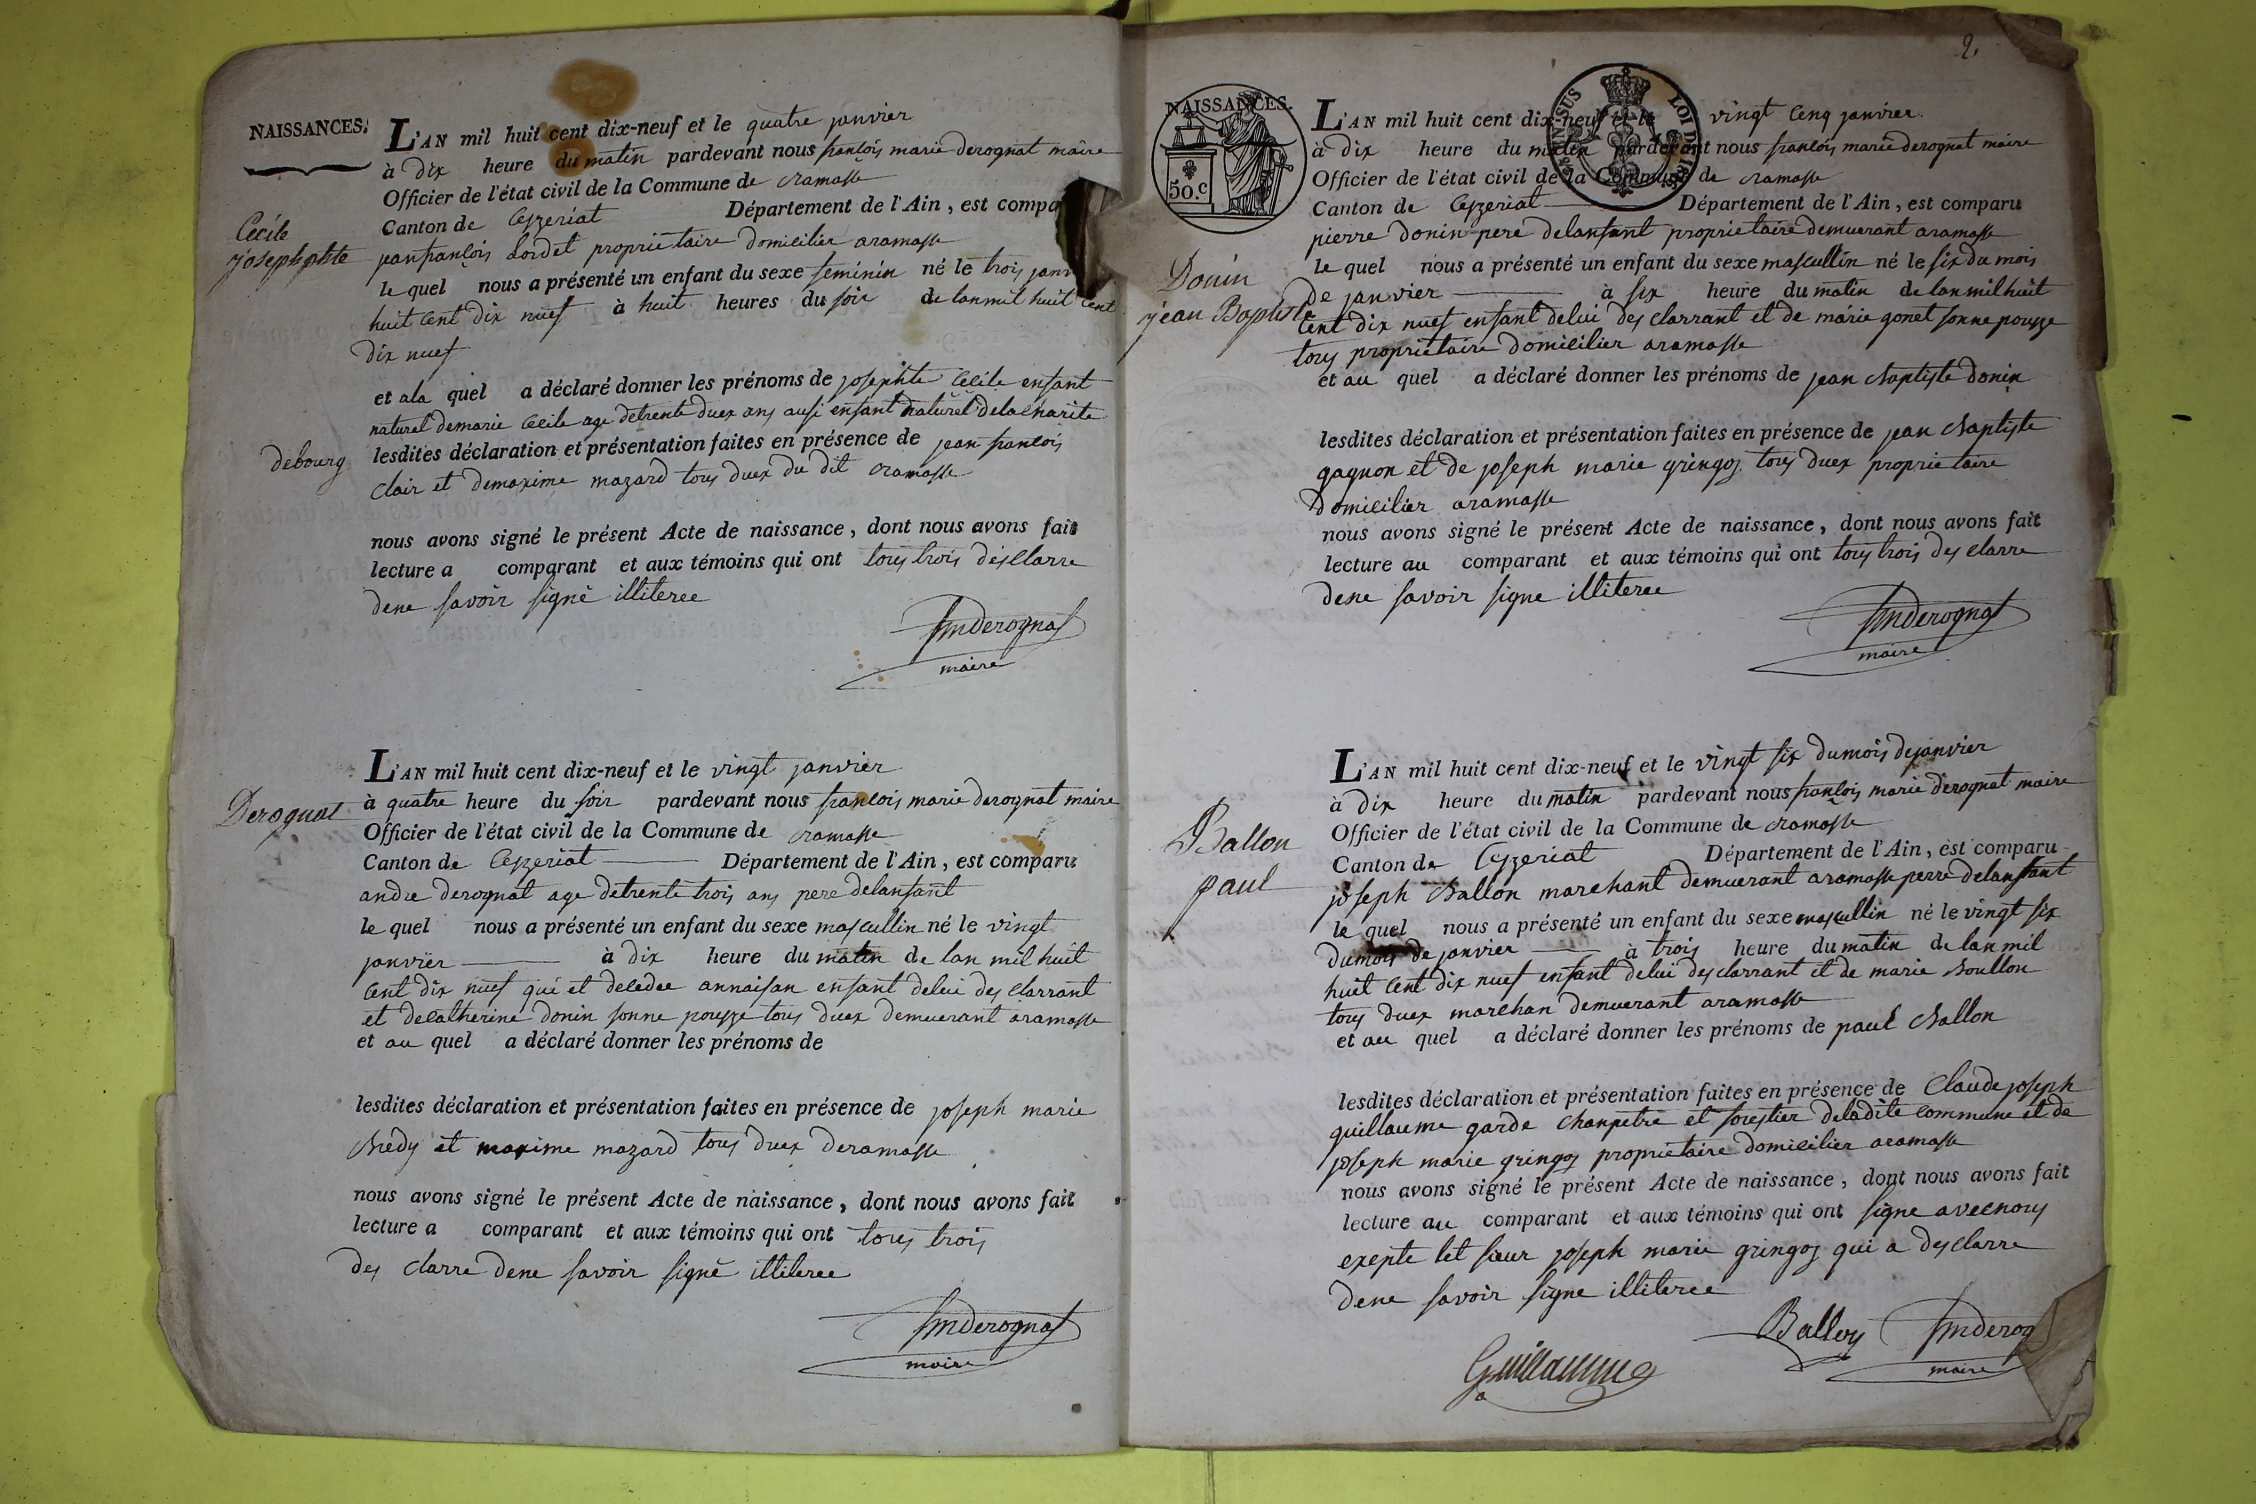 NAISSANCES.
Cécile
josephphte
debourg
L'AN mil huit cent dix-neuf et le quatre janvier
à dix heure du matin pardevant nous francois marie derognat maire
Officier de l'état civil de la Commune de ramasse
Canton de Ceyzeriat Département de l'Ain, est compa
jeanfrancois Lordel proprietaire domicilier aramasse
le quel nous a présenté un enfant du sexe feminin né le trois janv
huit cent dix nuef à huit heures du soir de lan mil huit cent
dix nuef
et ala quel a déclaré donner les prénoms de josephte Cécile enfant
naturel demarie Cecile age detrente duex ans ausi enfant naturel delacharite
lesdites déclaration et présentation faites en présence de jean francois
Clair et demaxime mazard tous duex du dit ramasse
nous avons signé le présent Acte de naissance, dont nous avons fait
lecture a comparant et aux témoins qui ont tous trois desclarre
dene savoir signé illiteree
fmderognat
maire
Derognat
L'AN mil huit cent dix-neuf et le vingt janvier
à quatre heure du soir pardevant nous francois marie derognat maire
Officier de l'état civil de la Commune de ramasse
Canton de Ceyzeriat Département de l'Ain, est comparu
andre derognat age detrente trois ans pere delanfant
le quel nous a présenté un enfant du sexe mascullin né le vingt
janvier à dix heure du matin de lan mil huit
cent dix nuef qui et decedee annaisan enfant delui des clarrant
et decatherine donin sonne pouzze tous duex demuerant aramasse
et au quel a déclaré donner les prénoms de
lesdites déclaration et présentation faites en présence de joseph marie
Bredy et maxime mazard tous duex deramasse
nous avons signé le présent Acte de naissance, dont nous avons fait
lecture a comparant et aux témoins qui ont tous trois
des clarre dene savoir signé illiteree
fmderognat
maire
2.
NAISSANCES.
50.c
LOI DE 18
Donin
jean Baptiste
L'AN mil huit cent dix-neuf et le vingt cenq janvier
à dix heure du matin pardevant nous francois marie derognat maire
Officier de l'état civil de la Commune de ramasse
Canton de Ceyzeriat Département de l'Ain, est comparu
pierre donin pere delanfant proprietaire demuerant aramasse
le quel nous a présenté un enfant du sexe mascullin né le six du mois
de janvier à six heure du matin de lan mil huit
cent dix nuef enfant delui des clarrant et de marie gonet sonne pouzze
tous proprietaire domicilier aramasse
et au quel a déclaré donner les prénoms de jean Baptiste donin
lesdites déclaration et présentation faites en présence de jean Baptiste
gagnon et de joseph marie gringoz tous duex proprietaire
domicilier aramasse
nous avons signé le présent Acte de naissance, dont nous avons fait
lecture au comparant et aux témoins qui ont tous trois des clarre
dene savoir signe illiteree
fmderognat
maire
Ballon
paul
L'AN mil huit cent dix-neuf et le vingt six dumois dejanvier
à dix heure du matin pardevant nous francois marie derognat maire
Officier de l'état civil de la Commune de ramasse
Canton de Ceyzeriat Département de l'Ain, est comparu
joseph Ballon marchant demuerant aramasse perre delanfant
le quel nous a présenté un enfant du sexe mascullin né le vingt six
dumois de janvier à trois heure du matin de lan mil
huit cent dix nuef enfant delui des clarrant et de marie Boullon
tous duex marchan demuerant aramasse
et au quel a déclaré donner les prénoms de paul Ballon
lesdites déclaration et présentation faites en présence de Claude joseph
guillaume garde chanpetre et forestier deladite commune et de
joseph marie gringoz proprietaire domicilier aramasse
nous avons signé le présent Acte de naissance, dont nous avons fait
lecture au comparant et aux témoins qui ont signe avecnous
exepte let sieur joseph marie gringoz qui a des clarre
dene savoir signe illiteree
Ballon fmderog
maire
Guillaume